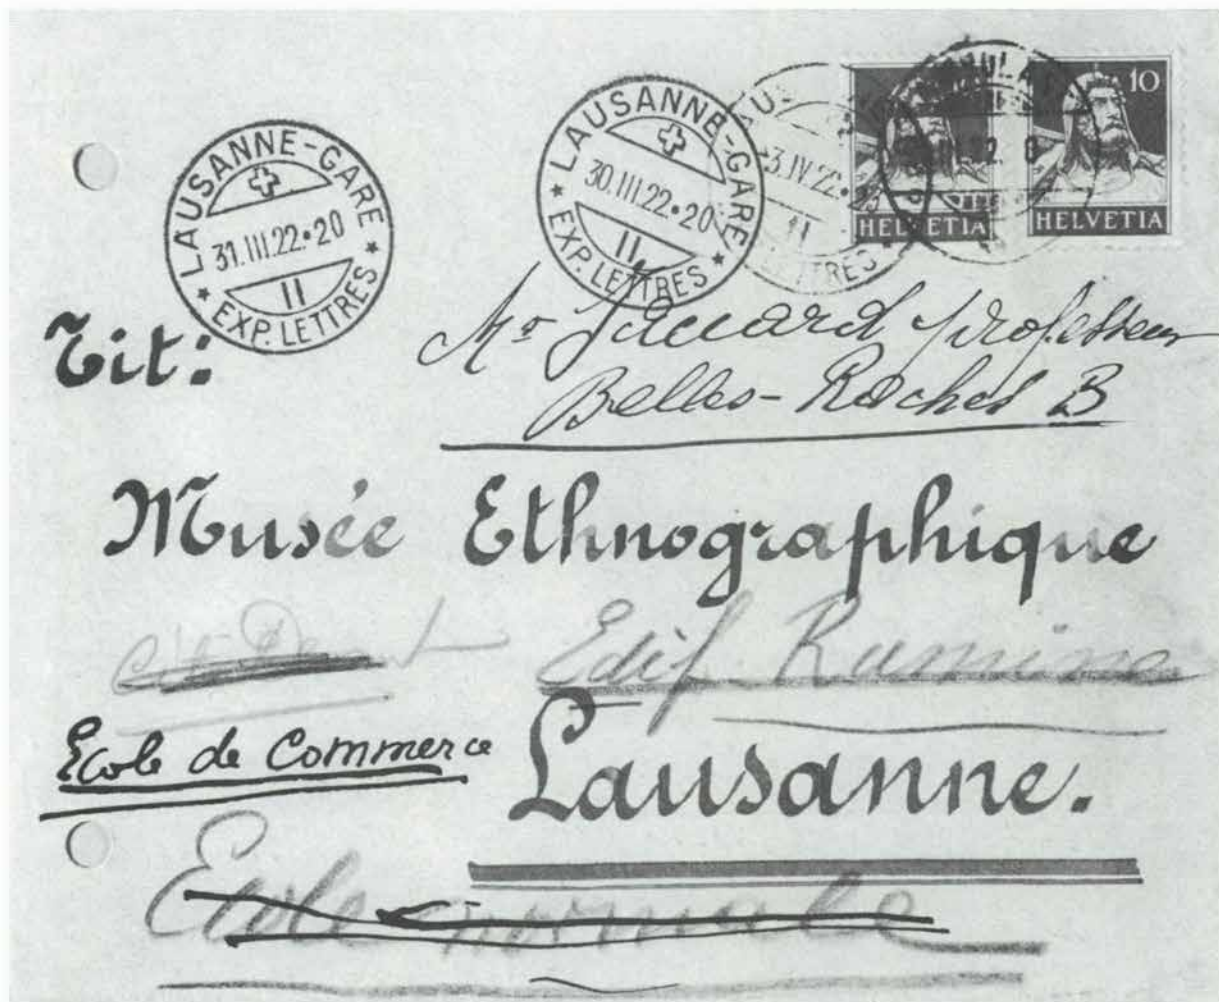 LAUSANNE-GARE
31.III.22·20
II
EXP. LETTRES
LAUSANNE-GARE
30.III.22·20
II
EXP. LETTRES
3.IV.22
II
TRES
HELVETIA
10
HELVETIA
Tit:
Mr Jaccard professeur
Belles-Roches B
Musée Ethnographique
Edif. Rumine
Ecole de Commerce
Lausanne.
Ecole normale